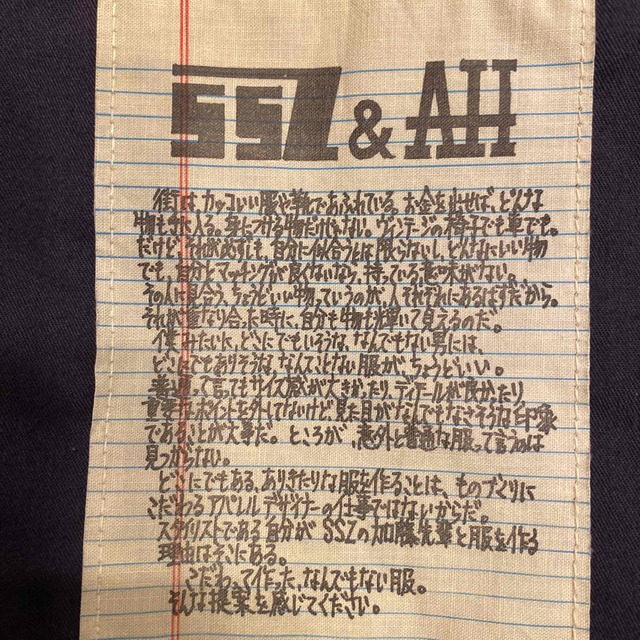 SSZ & AH
街はカッコいい服や靴であふれている。お金を出せば、どんな
物も手に入る。身につける物だけじゃない。ヴィンテージの椅子でも車でも。
だけど、それが必ずしも、自分に似合うとは限らないし、どんなにいい物
でも、自分とマッチングが良くないなら、持っている意味がない。
その人に見合う、ちょうどいい物っていうのが、人それぞれにあるはずだから。
それが重なり合った時に、自分も物も輝いて見えるのだ。
僕みたいに、どこにでもいそうな、なんでもない男には、
どこにでもありそうな、なんてことない服が、ちょうどいい。
普通って言ってもサイズ感が大きかったり、ディテールが良かったり
重要なポイントを外してないけど見た目がなんでもなさそうな印象
であることが大事だ。ところが、意外と普通な服って言うのは
見つからない。
どこにでもある、ありきたりな服を作ることは、ものづくりに
こだわるアパレルデザイナーの仕事ではないからだ。
スタイリストである自分が SSZの加藤先輩と服を作る
理由はそこにある。
こだわって作った、なんでもない服。
そんな提案を感じてください。